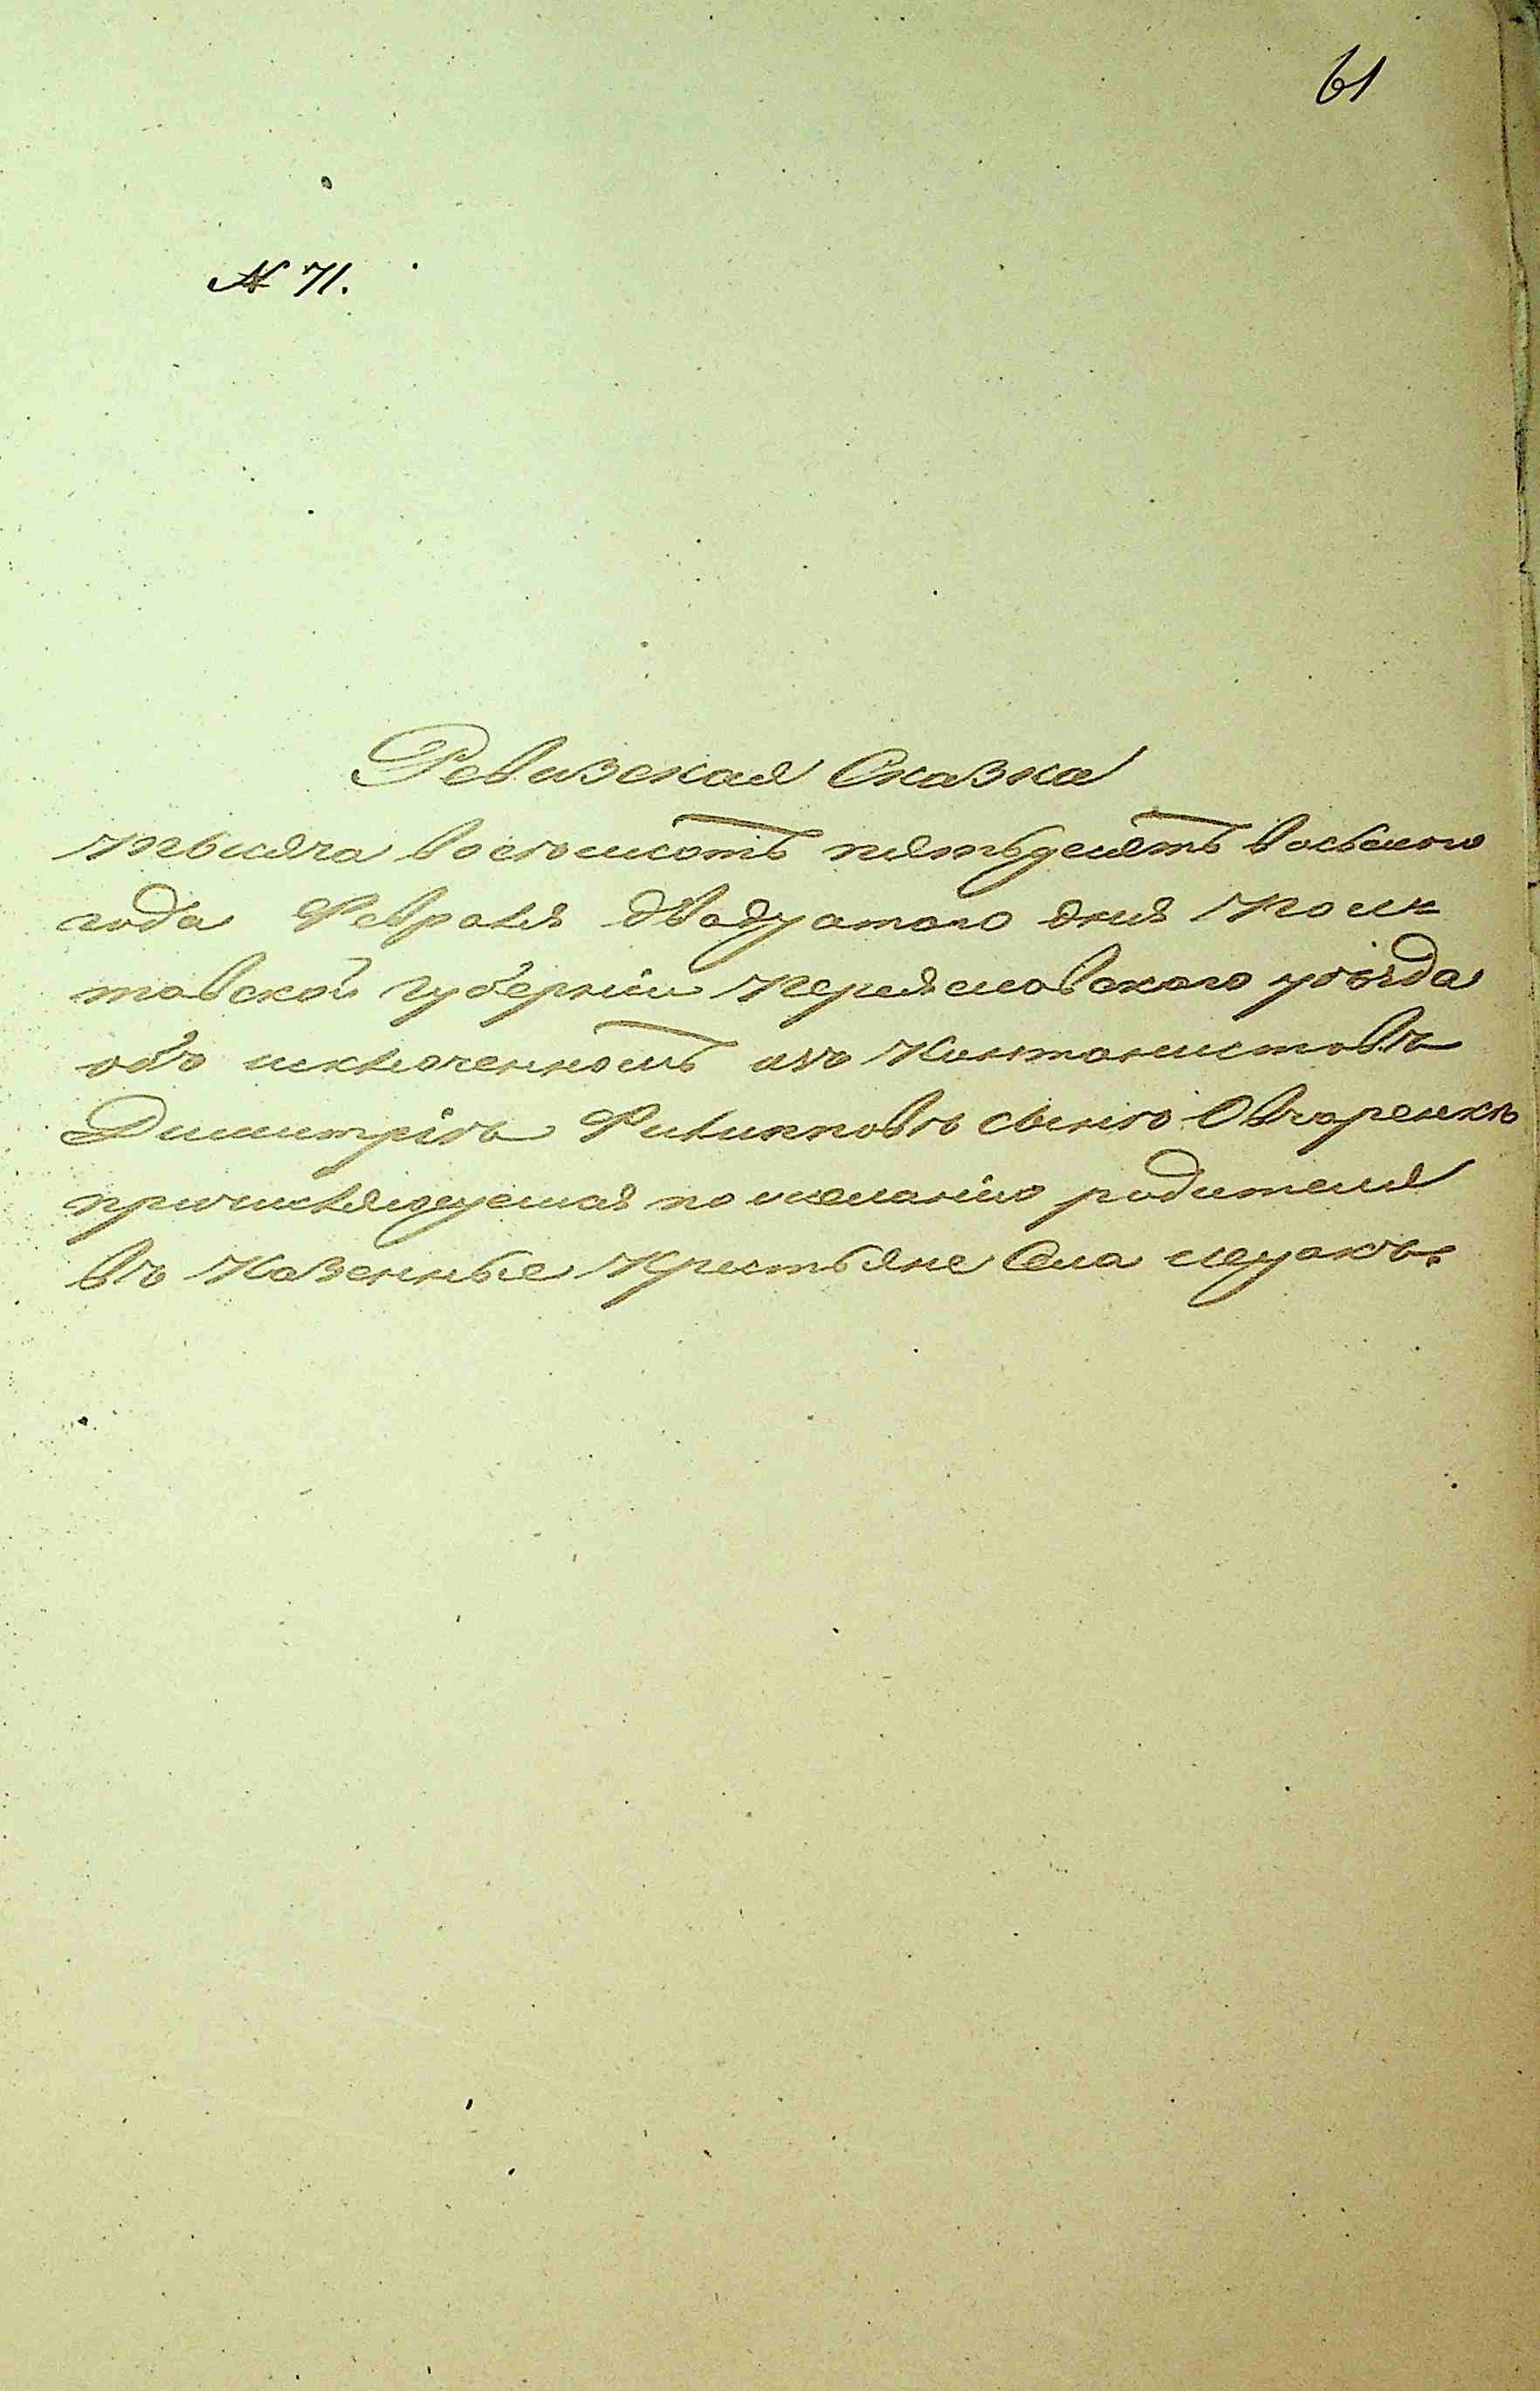 61
№ 71.
Ревизская Сказка
тысяча восемьсотъ пятьдесятъ восьмого
года Февраля двадцатого дня Пол=
тавской губерніи Переясловского уѣзда
объ исключенномъ изъ Кантонистовъ
Димитріѣ Филипповѣ сынѣ Овчаренкѣ
причисляющемся по желанію родителя
въ Казенные Крестьяне Села